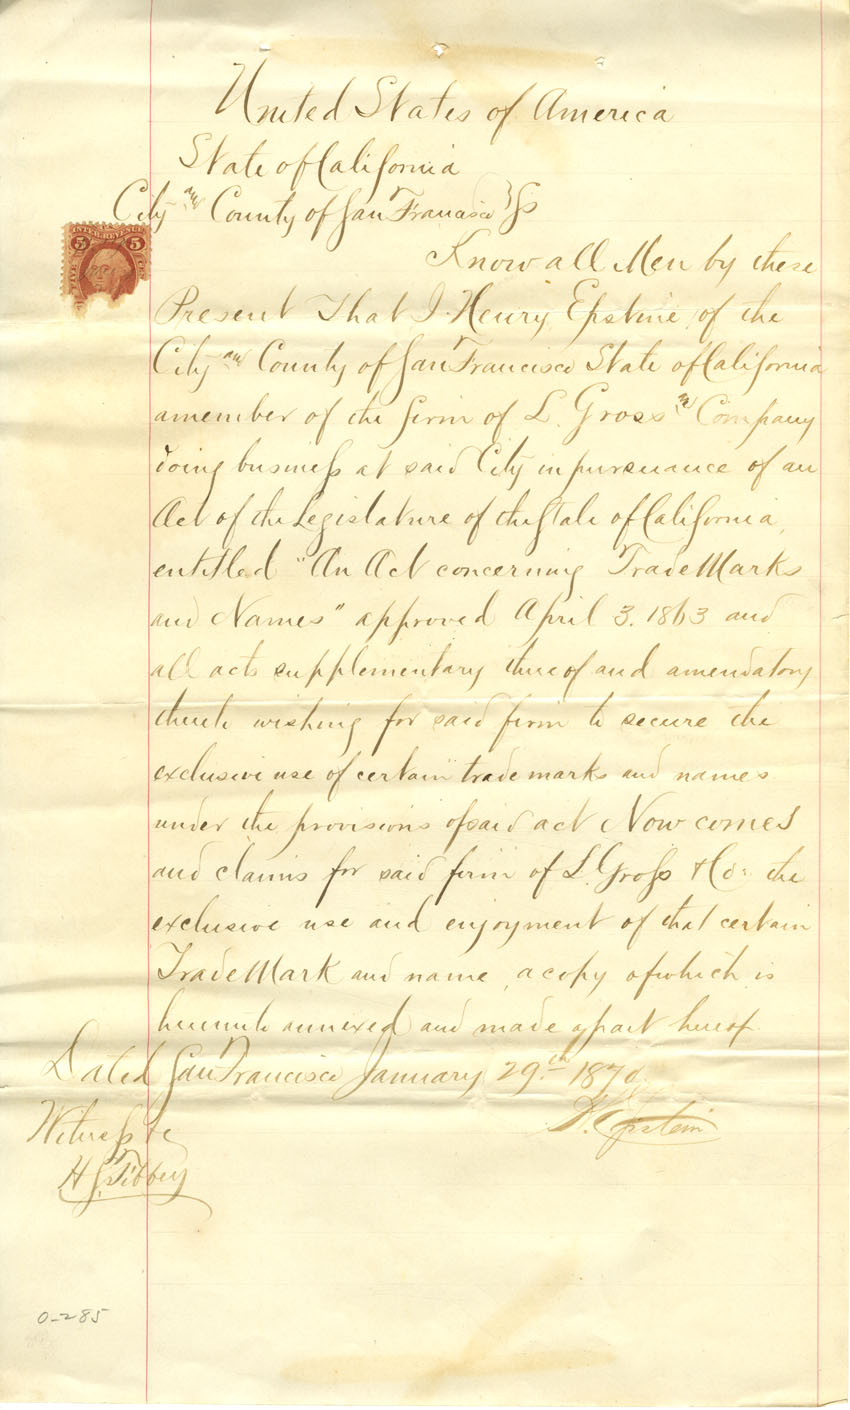 United States of America
State of California
City and County of San Francisco } ss
INTER. REVENUE
5 5
FIVE CTS
Know all Men by these
Present That I Henry Epstine of the
City and County of San Francisco State of California
a member of the firm of L. Gross and Company
doing business at said City in pursuance of an
Act of the Legislature of the State of California,
entitled "An Act concerning Trade Marks
and Names" approved April 3. 1863 and
all acts supplementary thereof and amendatory
thereto wishing for said firm to secure the
exclusive use of certain trade marks and names
under the provisions of said act Now comes
and claims for said firm of L. Gross & Co: the
exclusive use and enjoyment of that certain
Trade Mark and name, a copy of which is
hereunto annexed and made a part hereof
Dated San Francisco January 29th 1870
H. Epstein
Witness to
H S Tibbey
0-285